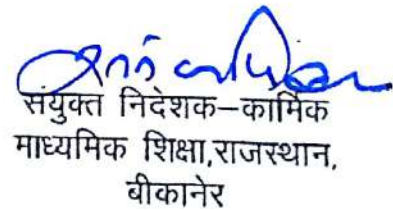 संयुक्त निदेशक–कार्मिक
माध्यमिक शिक्षा,राजस्थान,
बीकानेर